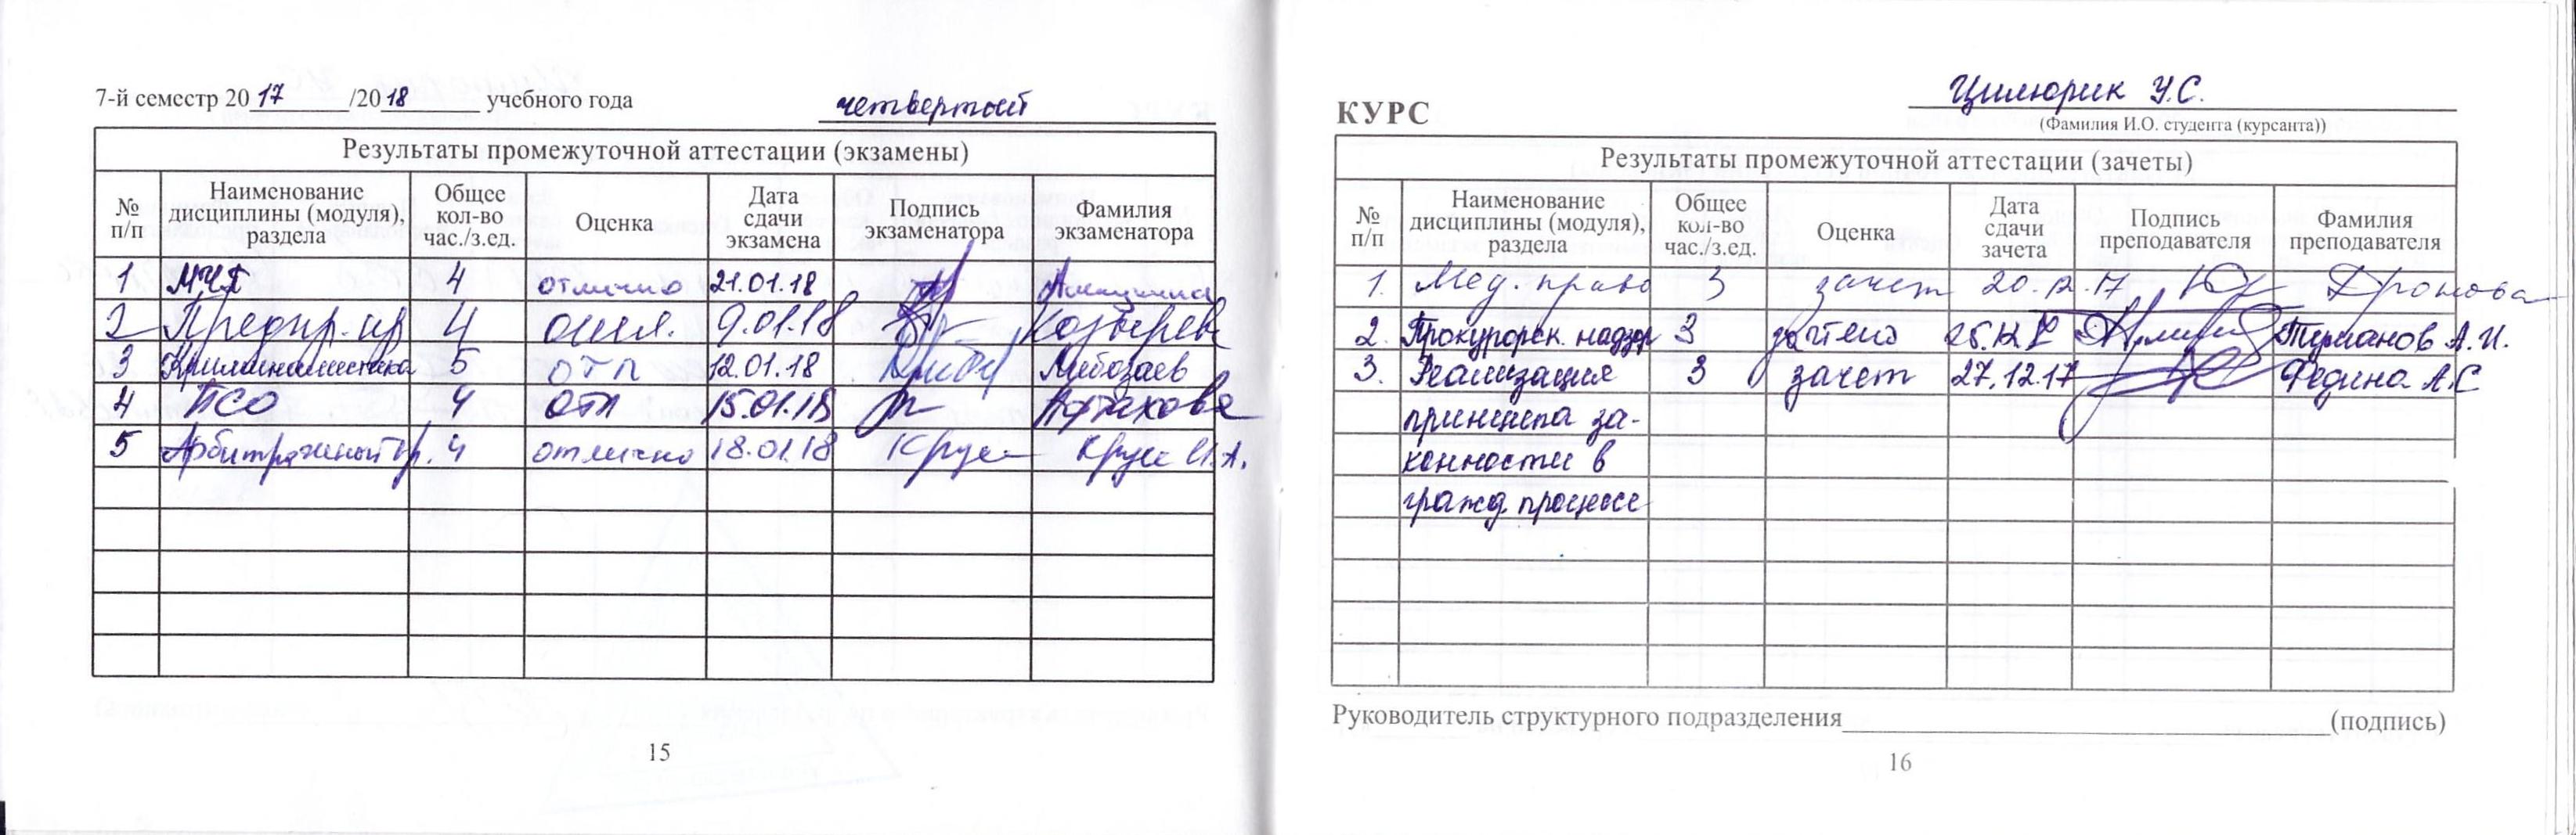 7-й семестр 2017/2018 учебного года четвертый
Результаты промежуточной аттестации (экзамены)
№ п/п Наименование дисциплины (модуля), раздела Общее кол-во час./з.ед. Оценка Дата сдачи экзамена Подпись экзаменатора Фамилия экзаменатора
1 МЧП 4 отлично 21.01.18
2 Предпр. пр 4 отл. 9.01.18 Козырева
3 Криминалистика 5 отл 12.01.18
4 ПСО 4 отл 15.01.18 Астахова
5 Арбитражный пр. 4 отлично 18.01.18 Крусс Крусс И.А.
15
КУРС Цилюрик У.С.
(Фамилия И.О. студента (курсанта))
Результаты промежуточной аттестации (зачеты)
№ п/п Наименование дисциплины (модуля), раздела Общее кол-во час./з.ед. Оценка Дата сдачи зачета Подпись преподавателя Фамилия преподавателя
1. Мед. право 3 зачет 20.12.17 Дронова
2. Прокурорск. надзор 3 зачтено 25.12.17 Туманов А.И.
3. Реализация 3 зачет 27.12.17 Федина А.С
принципа за-
конности в
гражд. процессе
Руководитель структурного подразделения (подпись)
16